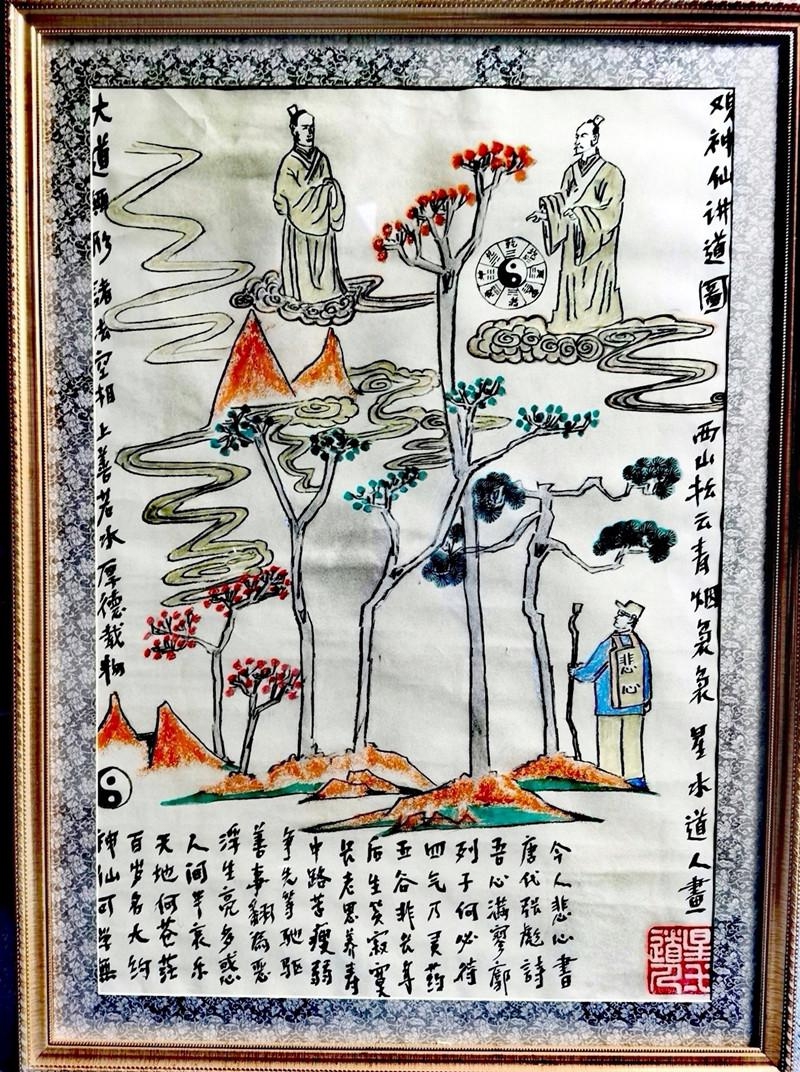 神仙讲道圖
西山松云青烟袅袅 星水道人畫
大道無形 諸法空相 上善若水 厚德载物
悲心
神仙可学無
百岁名大约
天地何苍茫
人间半哀乐
浮生亮多惑
善事翻為恶
争先等驰驱
中路苦瘦弱
长老思养寿
后生笑寂寞
五谷非长年
四气乃灵药
列子何必待
吾心满寥廓
唐代張彪詩
今人悲心書